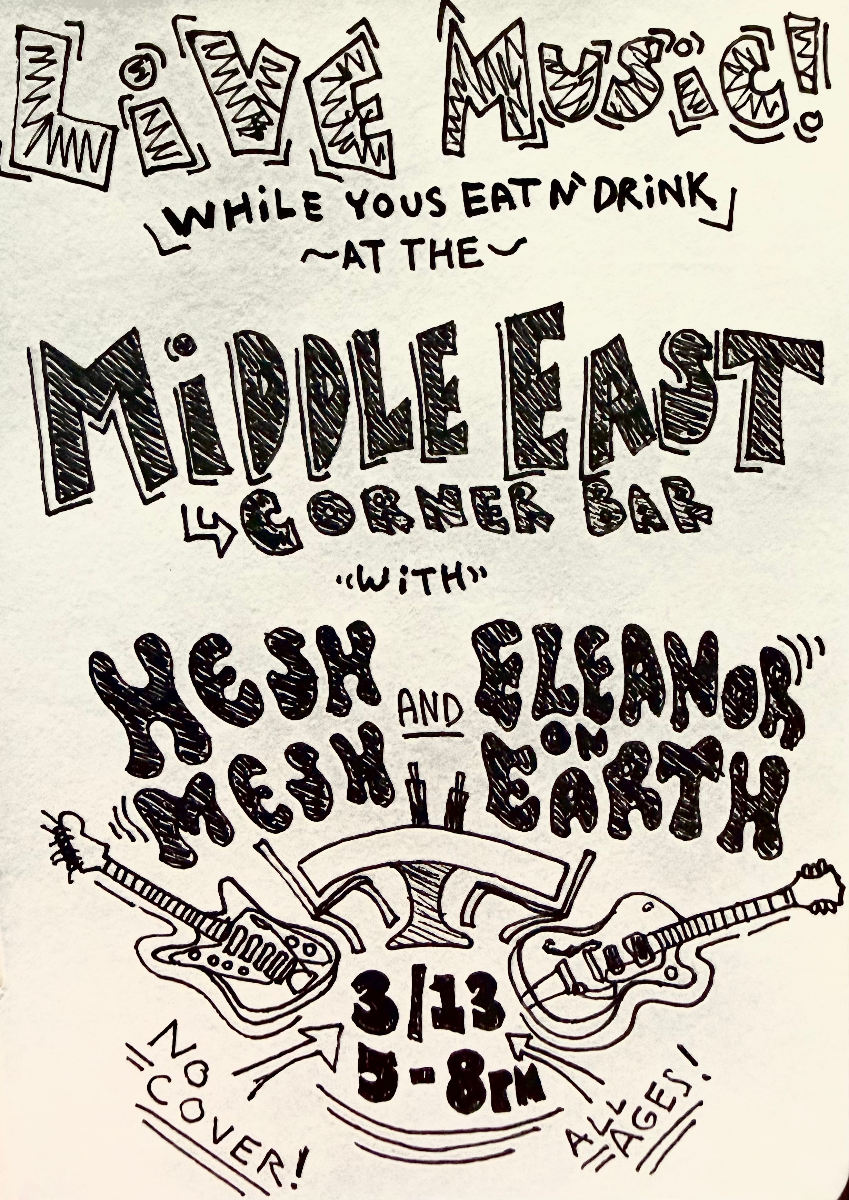 LiVE MUSiC!
WHiLE YOUS EAT N' DRiNK
~AT THE~
MiDDLE EAST
CORNER BAR
"WiTH"
HESH MESH
AND
ELEANOR ON EARTH
3/13
5-8PM
NO COVER!
ALL AGES!